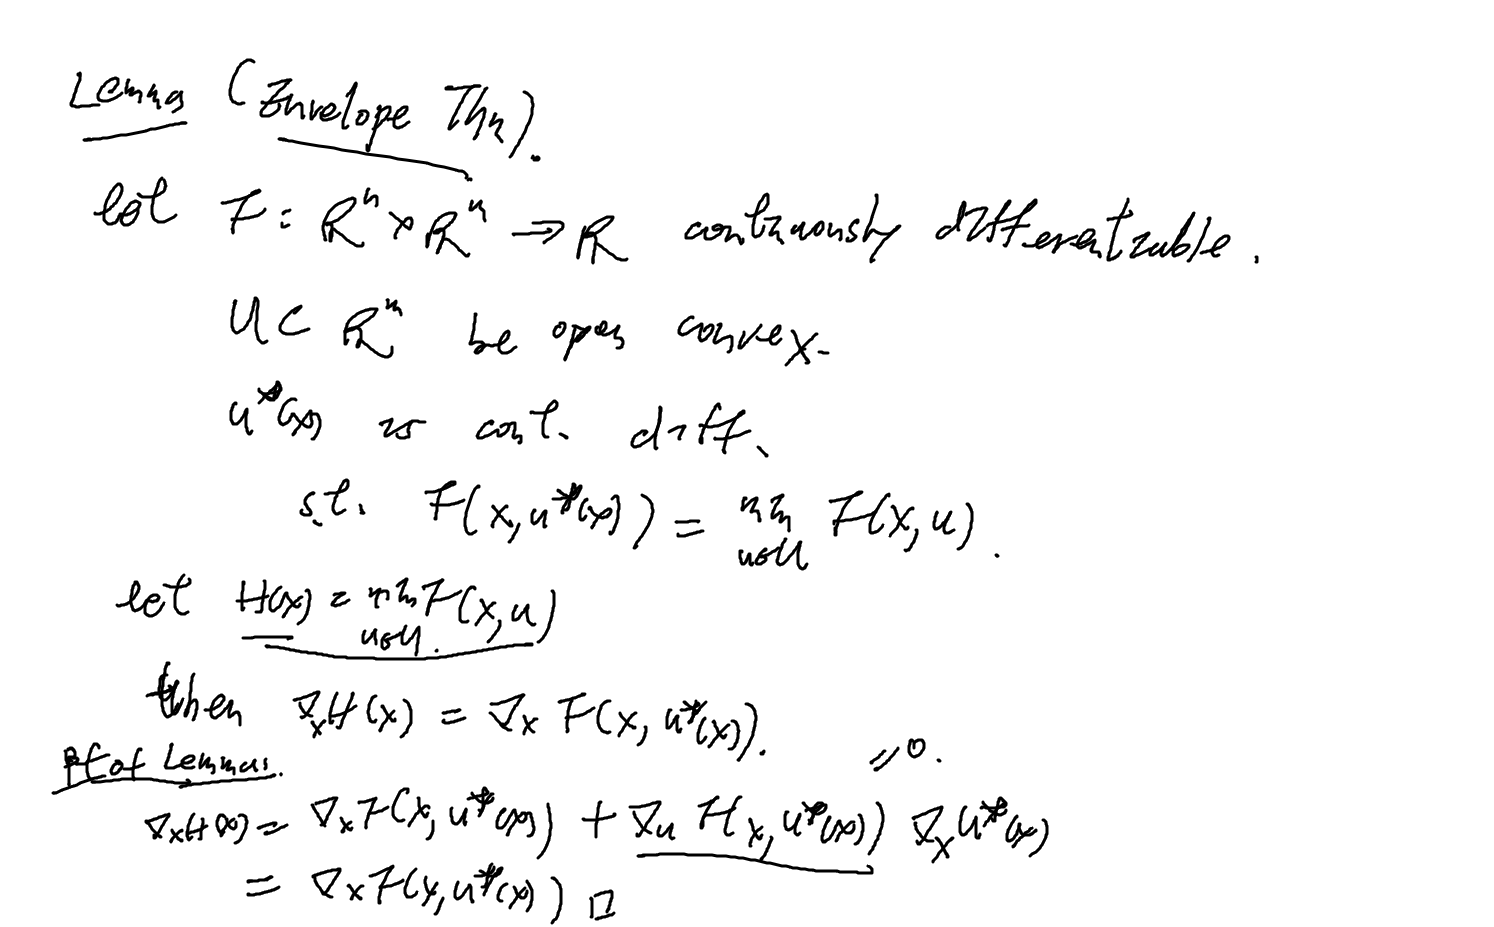 Lemma (Envelope Thm).
let F : ℝⁿ × ℝᵐ → ℝ continuously differentiable.
U ⊂ ℝᵐ be open convex.
u*(x) is cont. diff.
s.t. F(x, u*(x)) = min_{u∈U} F(x, u).
let H(x) = min_{u∈U} F(x, u)
then ∇ₓH(x) = ∇ₓ F(x, u*(x)).
pf of Lemma.
= 0.
∇ₓH(x) = ∇ₓF(x, u*(x)) + ∇ᵤ F(x, u*(x)) ∇ₓu*(x)
= ∇ₓF(x, u*(x)) □